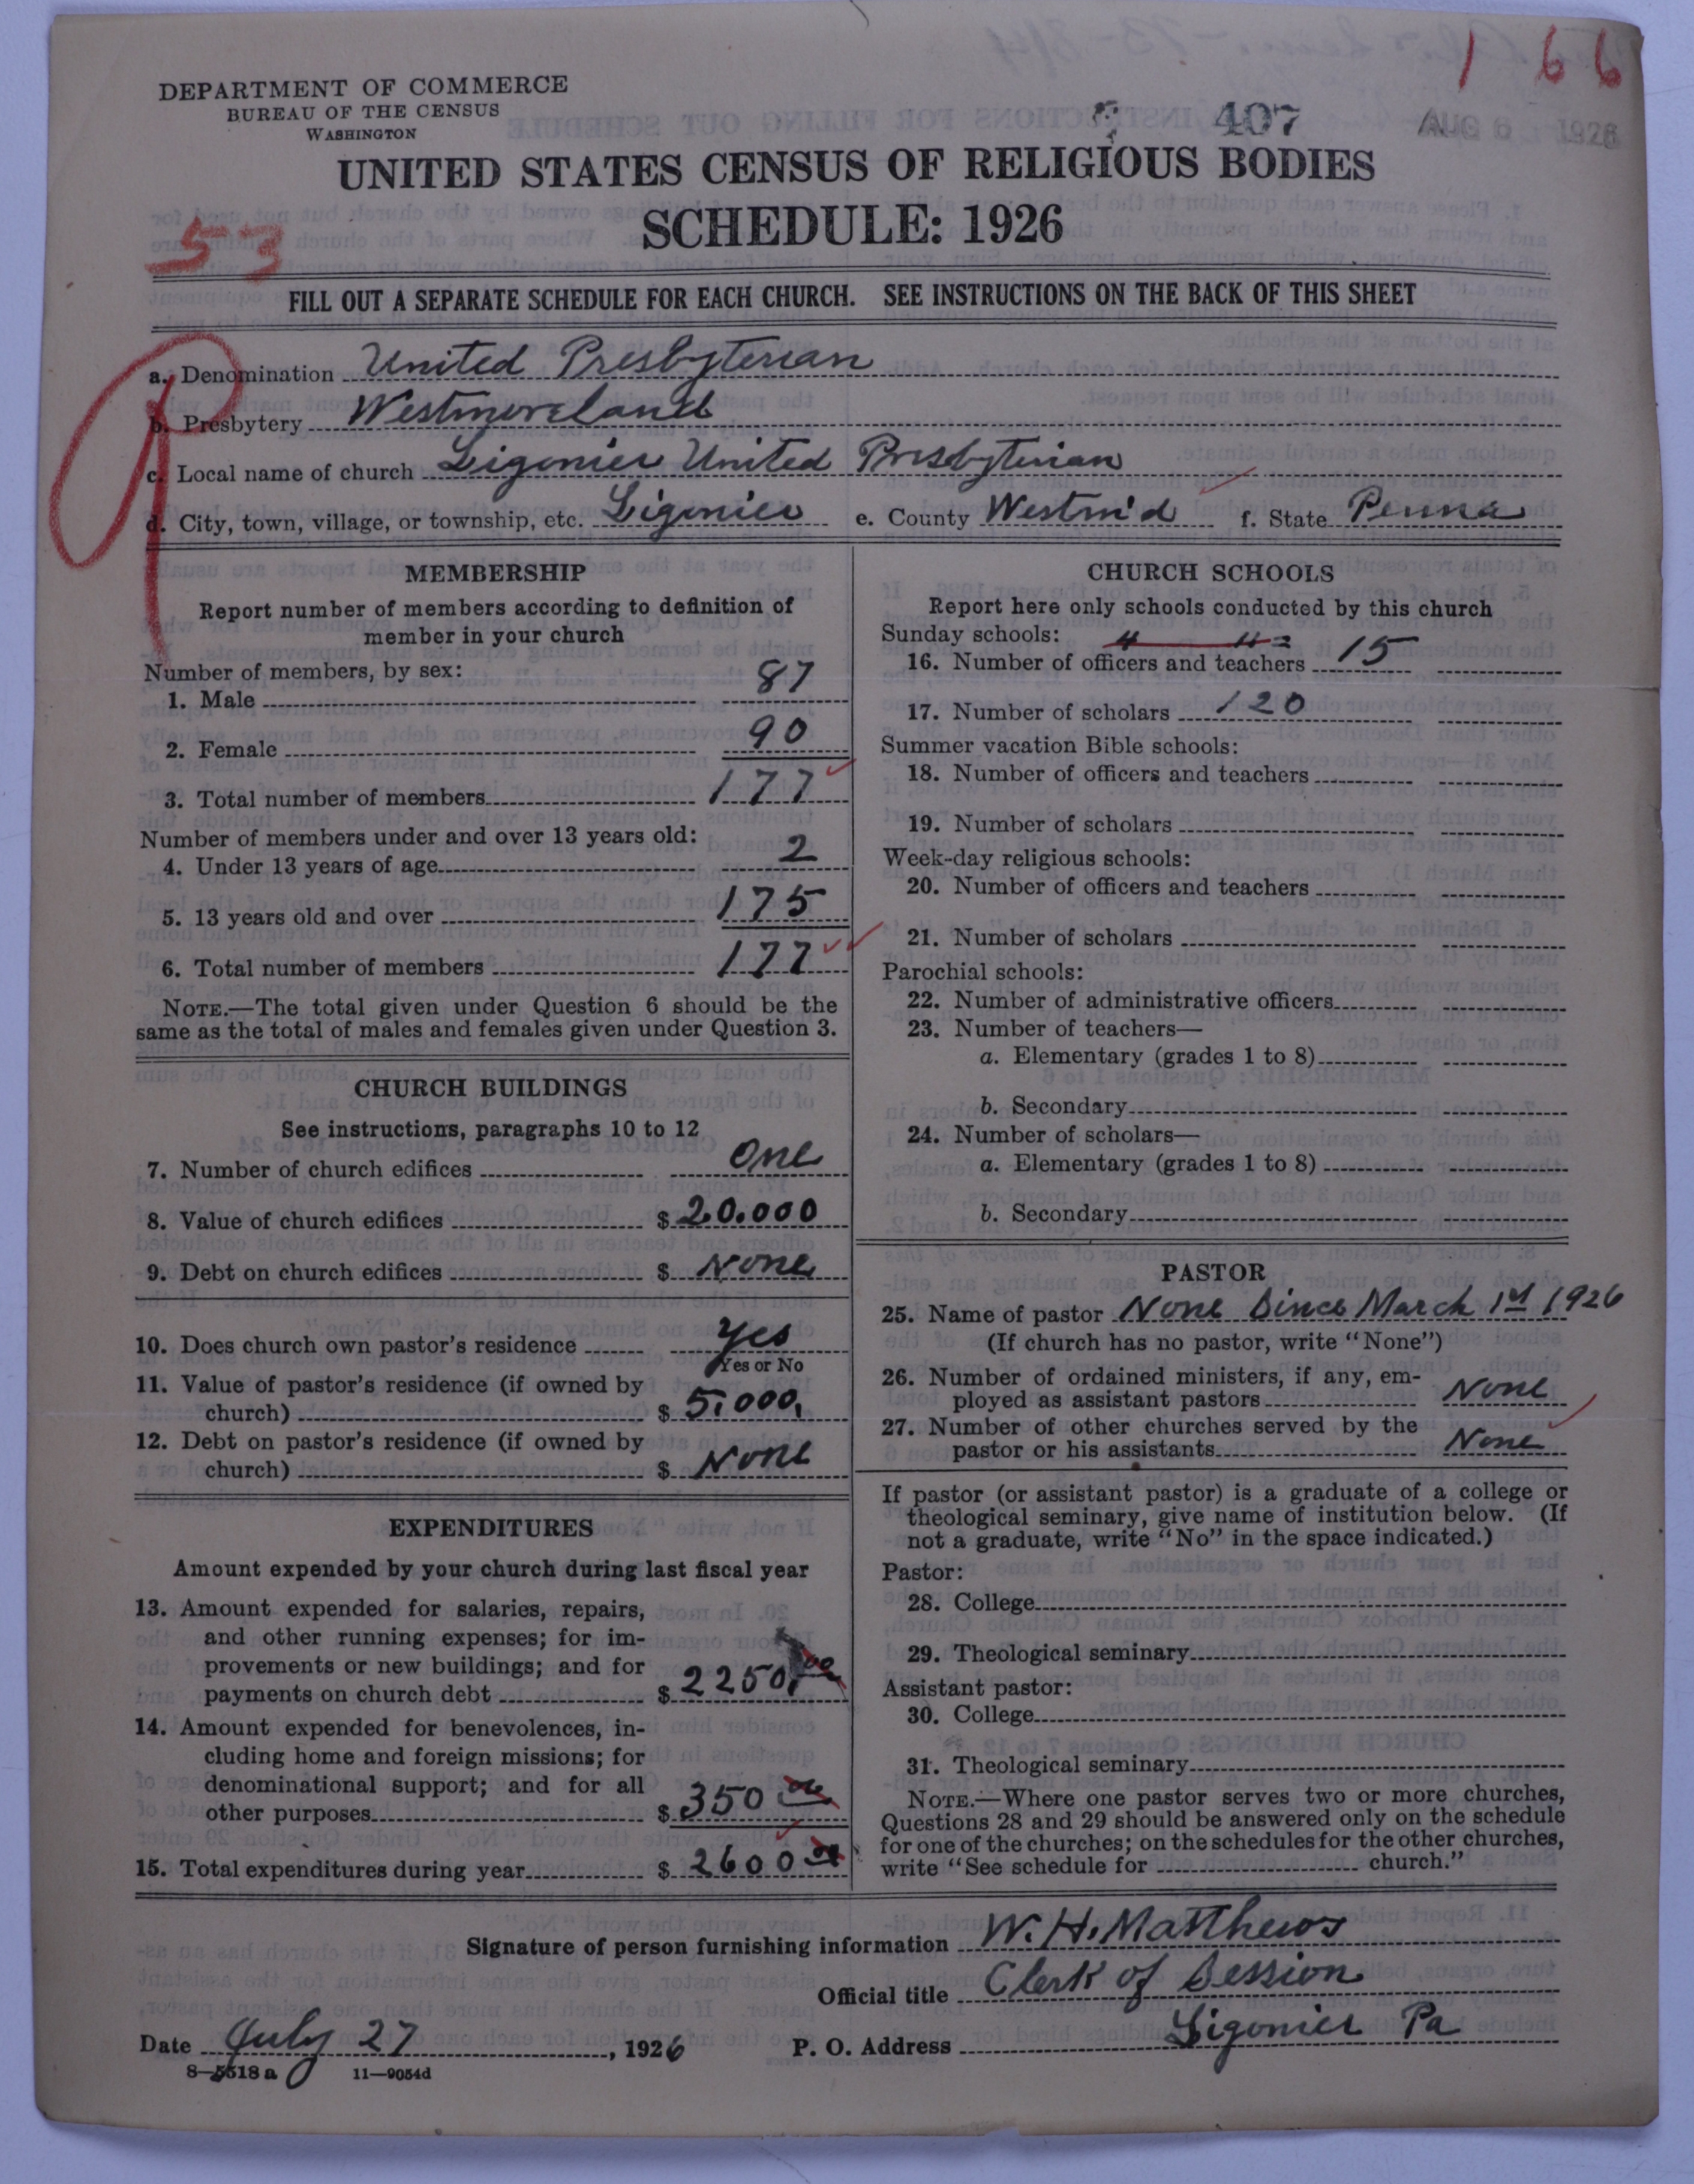 1 66
DEPARTMENT OF COMMERCE
BUREAU OF THE CENSUS
WASHINGTON
407
AUG 6 1926
UNITED STATES CENSUS OF RELIGIOUS BODIES
SCHEDULE: 1926
53
FILL OUT A SEPARATE SCHEDULE FOR EACH CHURCH. SEE INSTRUCTIONS ON THE BACK OF THIS SHEET
a. Denomination United Presbyterian
b. Presbytery Westmoreland
c. Local name of church Ligonier United Presbyterian
d. City, town, village, or township, etc. Ligonier e. County Westm'd f. State Penna
MEMBERSHIP
Report number of members according to definition of
member in your church
Number of members, by sex:
1. Male 87
2. Female 90
3. Total number of members 177
Number of members under and over 13 years old:
4. Under 13 years of age 2
5. 13 years old and over 175
6. Total number of members 177
NOTE.—The total given under Question 6 should be the
same as the total of males and females given under Question 3.
CHURCH BUILDINGS
See instructions, paragraphs 10 to 12
7. Number of church edifices One
8. Value of church edifices $ 20.000
9. Debt on church edifices $ None
10. Does church own pastor's residence Yes
Yes or No
11. Value of pastor's residence (if owned by
church) $ 5.000.
12. Debt on pastor's residence (if owned by
church) $ None
EXPENDITURES
Amount expended by your church during last fiscal year
13. Amount expended for salaries, repairs,
and other running expenses; for im-
provements or new buildings; and for
payments on church debt $ 2250.00
14. Amount expended for benevolences, in-
cluding home and foreign missions; for
denominational support; and for all
other purposes $ 350 00
15. Total expenditures during year $ 2600 00
CHURCH SCHOOLS
Report here only schools conducted by this church
Sunday schools:
16. Number of officers and teachers 15
17. Number of scholars 120
Summer vacation Bible schools:
18. Number of officers and teachers
19. Number of scholars
Week-day religious schools:
20. Number of officers and teachers
21. Number of scholars
Parochial schools:
22. Number of administrative officers
23. Number of teachers—
a. Elementary (grades 1 to 8)
b. Secondary
24. Number of scholars—
a. Elementary (grades 1 to 8)
b. Secondary
PASTOR
25. Name of pastor None Since March 1st 1926
(If church has no pastor, write "None")
26. Number of ordained ministers, if any, em-
ployed as assistant pastors None
27. Number of other churches served by the
pastor or his assistants None
If pastor (or assistant pastor) is a graduate of a college or
theological seminary, give name of institution below. (If
not a graduate, write "No" in the space indicated.)
Pastor:
28. College
29. Theological seminary
Assistant pastor:
30. College
31. Theological seminary
NOTE.—Where one pastor serves two or more churches,
Questions 28 and 29 should be answered only on the schedule
for one of the churches; on the schedules for the other churches,
write "See schedule for church."
Signature of person furnishing information W. H. Matthews
Official title Clerk of Session
Date July 27, 1926 P. O. Address Ligonier Pa
8—5518 a 11—9054d